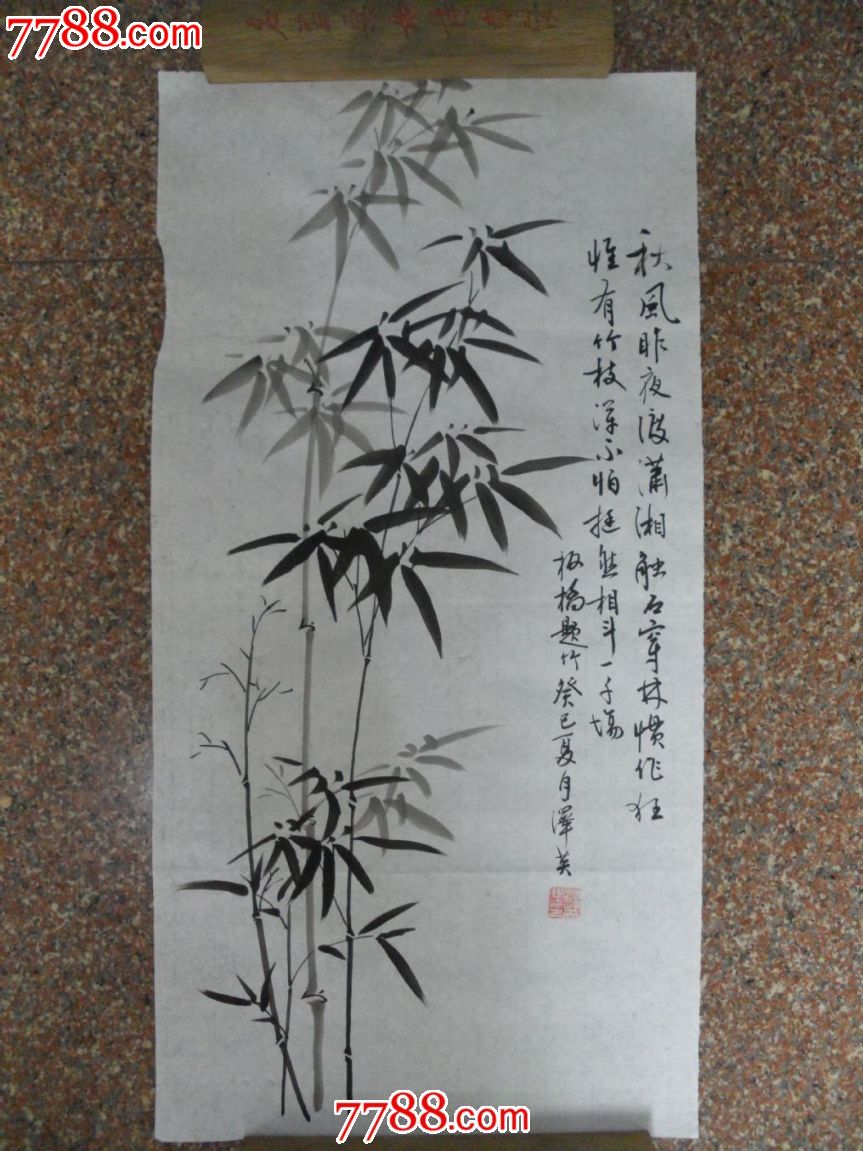 7788.com
7788.com
秋風昨夜渡瀟湘觸石穿林慣作狂
惟有竹枝渾不怕挺然相斗一千場
板橋题竹癸巳夏月澤英
7788.com